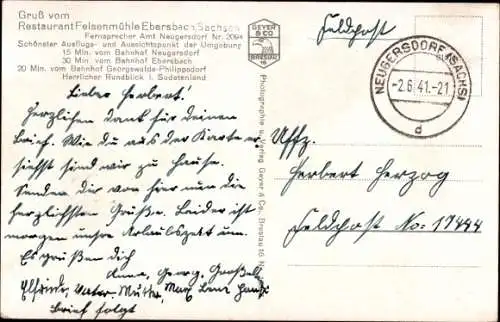 Gruß vom
Restaurant Felsenmühle Ebersbach/Sachsen
Fernsprecher Amt Neugersdorf Nr. 2094
Schönster Ausflugs- und Aussichtspunkt der Umgebung
15 Min. vom Bahnhof Neugersdorf
30 Min. vom Bahnhof Ebersbach
20 Min. vom Bahnhof Georgswalde-Philippsdorf
Herrlicher Rundblick i. Sudetenland
Lieber Herbert!
Herzlichen Dank für deinen
Brief. Wie du aus der Karte er-
siehst sind wir zu Hause.
Senden dir von hier nun die
herzlichsten Grüße. Leider ist
morgen unsre Urlaubszeit um.
Es grüßen dich
Anna, Georg,
Elfriede, Vater, Mutter,
Brief folgt
GEYER
& CO
BRESLAU
16
Photographie u. Verlag Geyer & Co., Breslau 16
Feldpost
NEUGERSDORF (SACHS)
-2.6.41.-21
d
Uffz.
Herbert Herzog
Feldpost No: 17444